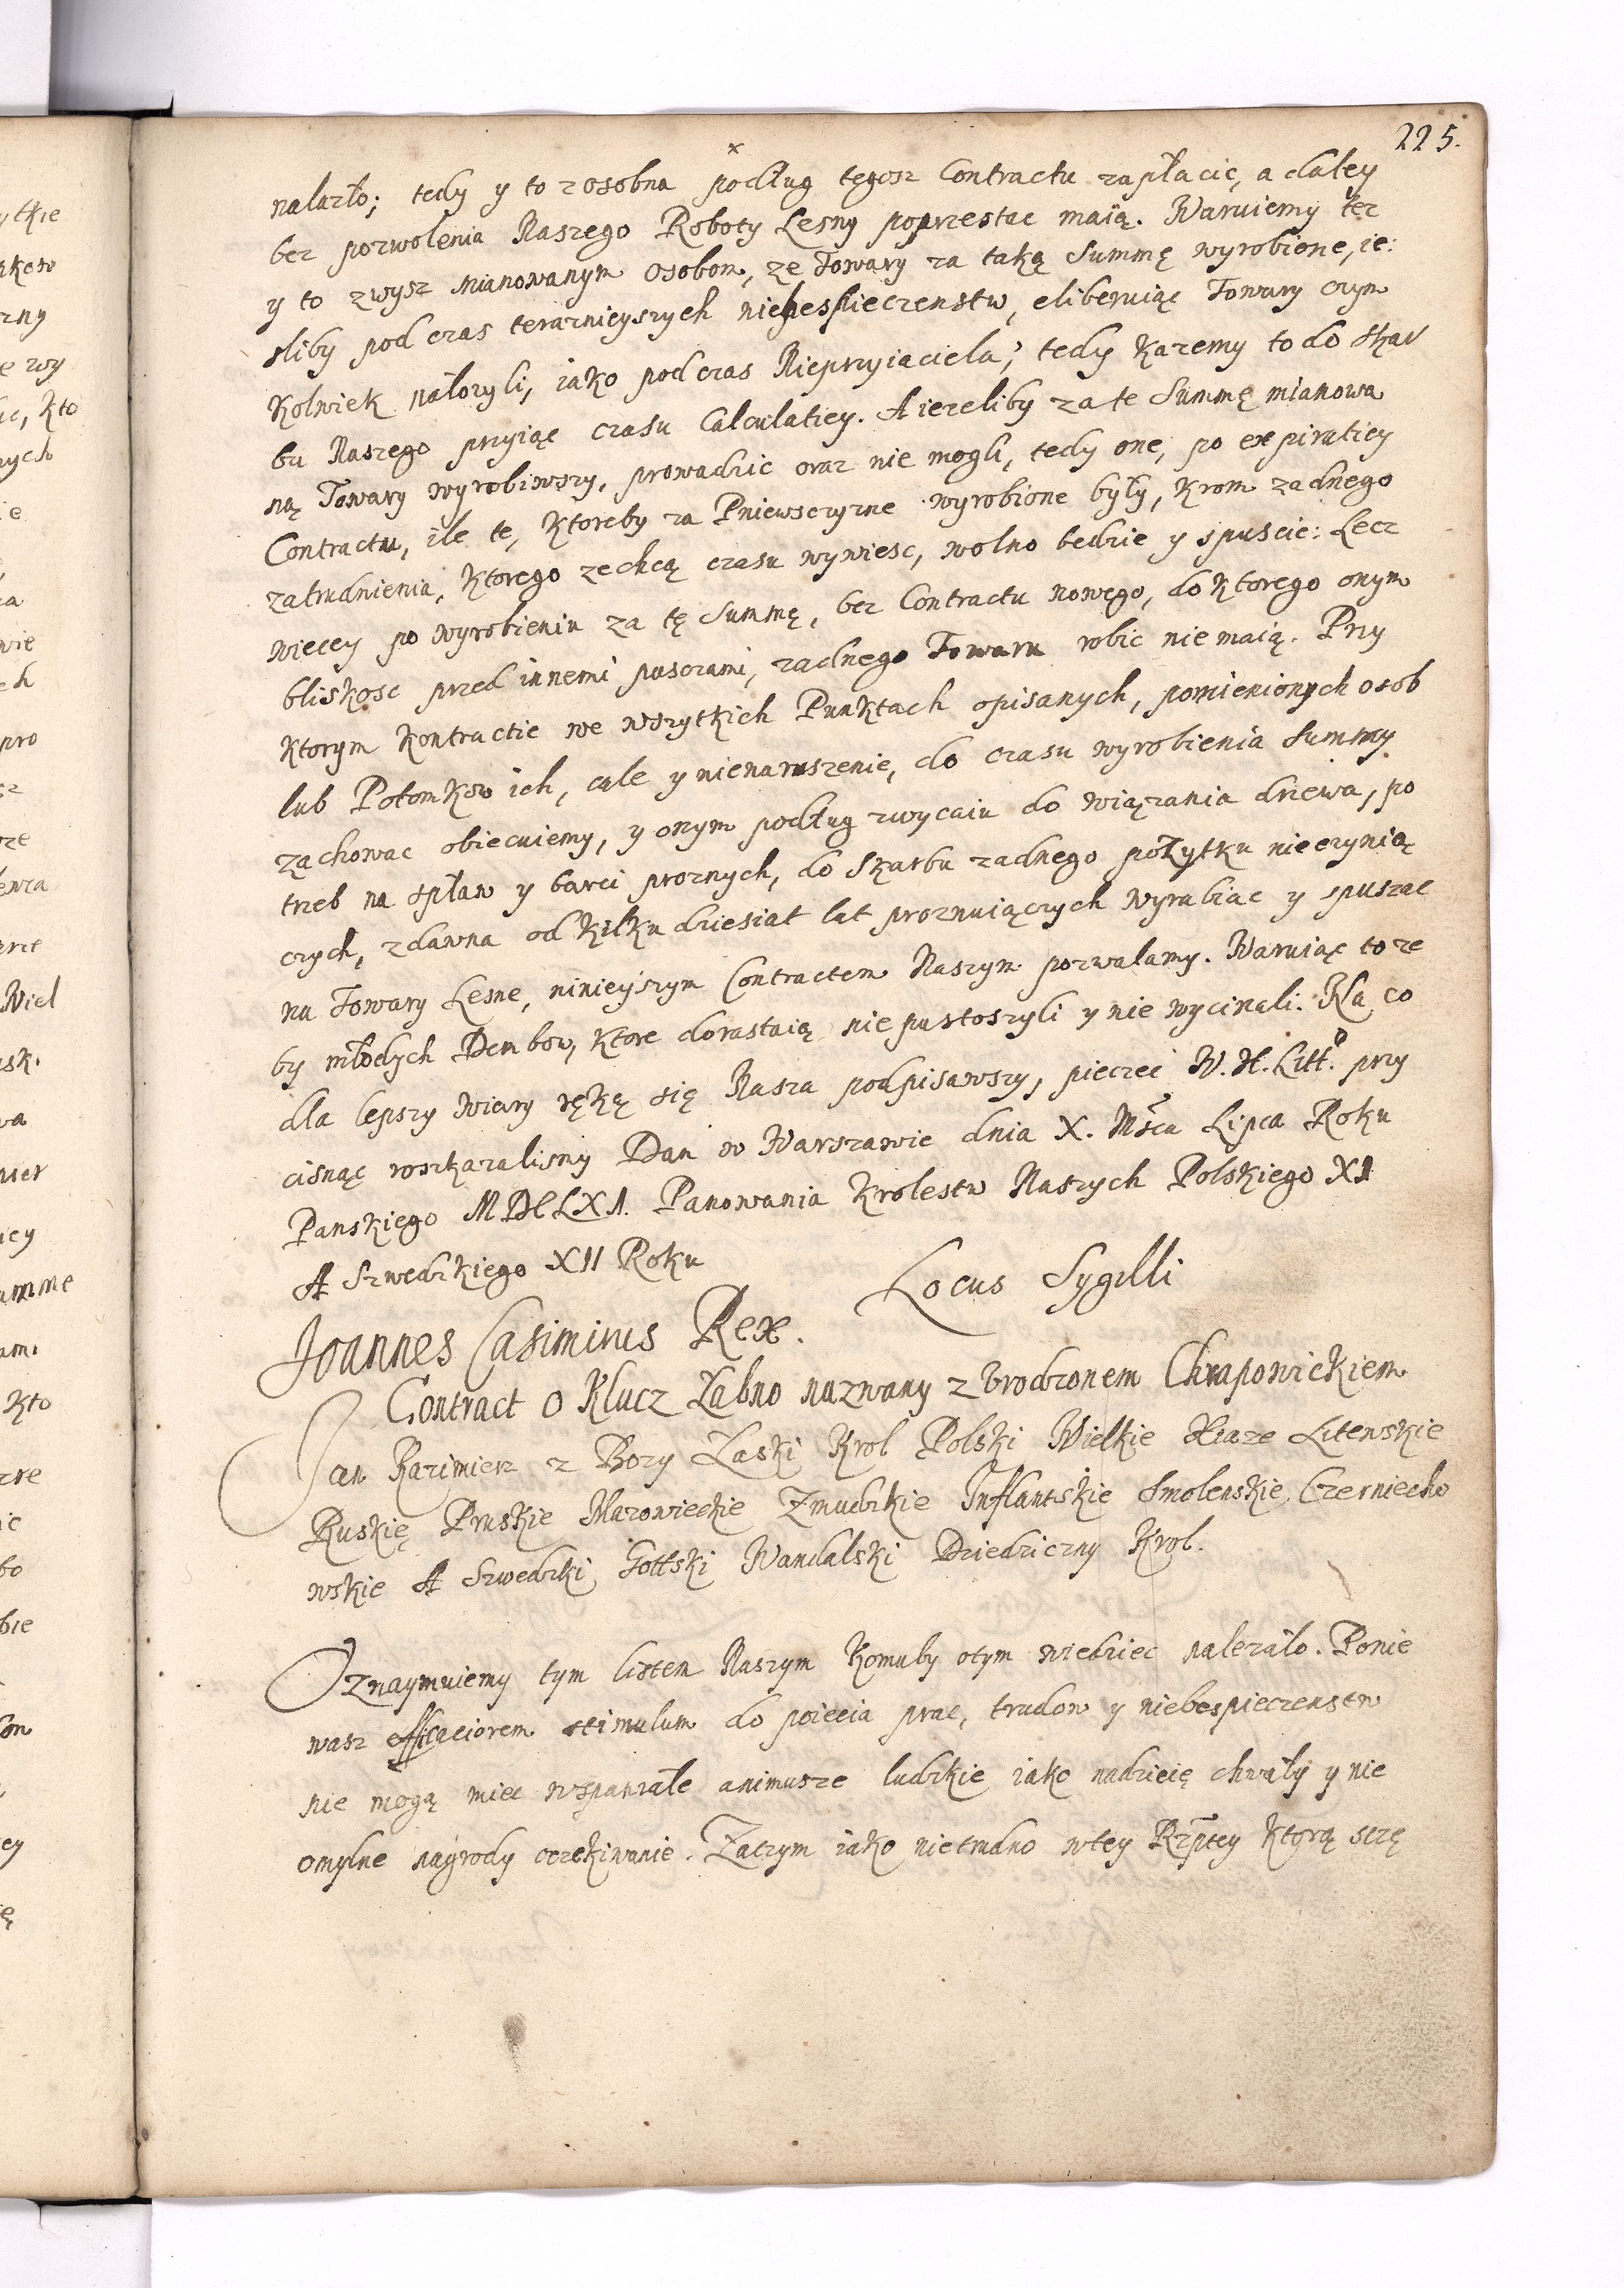 225.
nalazło; tedy y to zosobna podług tegosz Contractu zapłacic, a daley
bez pozwolenia Naszego Roboty Lesny poprzestac maią. Waruiemy tez
y to zwysz mianowanym osobom, ze Towary za taką Summę wyrobione, ie:
sliby pod czas terazniejszych niebespieczenstw, eliberuiąc Towary czym
Kolwiek nałozyli, iako pod czas Nieprzyiaciela, tedy Kazemy to do Skar
bu Naszego przyiąc czasu Calculatiey. A iezeliby za te Summę mianowa
ną Towary wyrobiwszy, prowadzic oraz nie mogli, tedy one, po expiratiey
Contractu, ile te, Ktoreby za Pniewszczyzne wyrobione były, Krom zadnego
zatrudnienia, Ktorego zechcą czasu wywiesc, wolno bedzie y spuscic: Lecz
wiecey po wyrobieniu za tę Summę, bez Contractu nowego, do Ktorego onym
bliskosc przed innemi puszczami, zadnego Towaru robic nie maią. Przy
Ktorym Kontractie we wszytkich Punktach opisanych, pomienionych osób
lub Potomkow ich, cale y nienaruszenie, do czasu wyrobienia Summy
zachowac obiecuiemy, y onym podług zwyczaiu do wiązania drzewa, po
trzeb na spław y barci proznych, do Skarbu zadnego pożytku nieczynią
czych, zdawna od Kilku dziesiat lat proznuiączych wyrabiac y spuszac
na Towary Lesne, ninieyszym Contractem Naszym pozwalamy. Waruiąc to ze
by młodych Dembow, Ktore dorastaią nie pustoszyli y nie wycinali. Na co
dla lepszy wiary ręką się Nasza podpisawszy, pieczec W. X. Litt.º przy
cisnąc roszkazalismy Dan w Warszawie dnia X. Msca Lipca Roku
Panskiego MDCLXI. Panowania Krolestw Naszych Polskiego XI
A Szwedzkiego XII Roku
Locus Sygilli
Joannes Casimirus Rex.
Contract o Klucz Łabno nazwany z Urodzonem Chrapowickiem
Jan Kazimierz z Bozy Łaski Krol Polski Wielkie Xiaze Litewskie
Ruskię Pruskie Mazowieckie Zmudzkie Inflantskie Smolenskie, Czerniecho
wskie A Szwedzki Gottski Wandalski Dziedziczny Krol.
Oznaymuiemy tym listem Naszym Komuby otym wiedziec nalezało. Ponie
wasz efficaciorem stimulum do poiecia prac, trudow y niebespieczenstw
nie mogą miec wspaniałe animusze ludzkie iako nadzieię chwały y nie
omylne nagrody oczekiwanie. Zaczym iako nietrudno wtey Rzptey Ktorą szczę